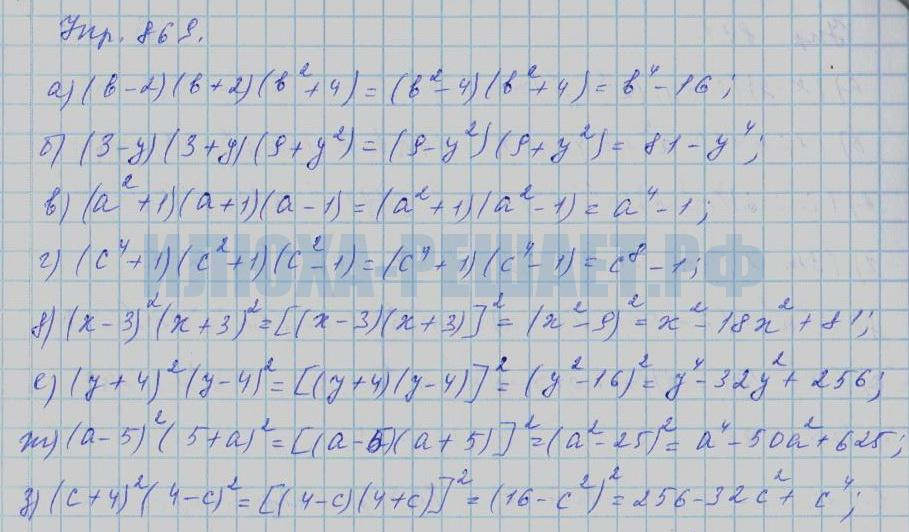 Упр. 869.
а) (в-2)(в+2)(в²+4) = (в²-4)(в²+4) = в⁴-16;
б) (3-y)(3+y)(9+y²) = (9-y²)(9+y²) = 81-y⁴;
в) (a²+1)(a+1)(a-1) = (a²+1)(a²-1) = a⁴-1;
г) (c⁴+1)(c²+1)(c²-1) = (c⁴+1)(c⁴-1) = c⁸-1;
ИЛЮХА-РЕШАЕТ.РФ
д) (x-3)²(x+3)² = [(x-3)(x+3)]² = (x²-9)² = x²-18x²+81;
е) (y+4)²(y-4)² = [(y+4)(y-4)]² = (y²-16)² = y⁴-32y²+256;
ж) (a-5)²(5+a)² = [(a-5)(a+5)]² = (a²-25)² = a⁴-50a²+625;
з) (c+4)²(4-c)² = [(4-c)(4+c)]² = (16-c²)² = 256-32c²+c⁴;